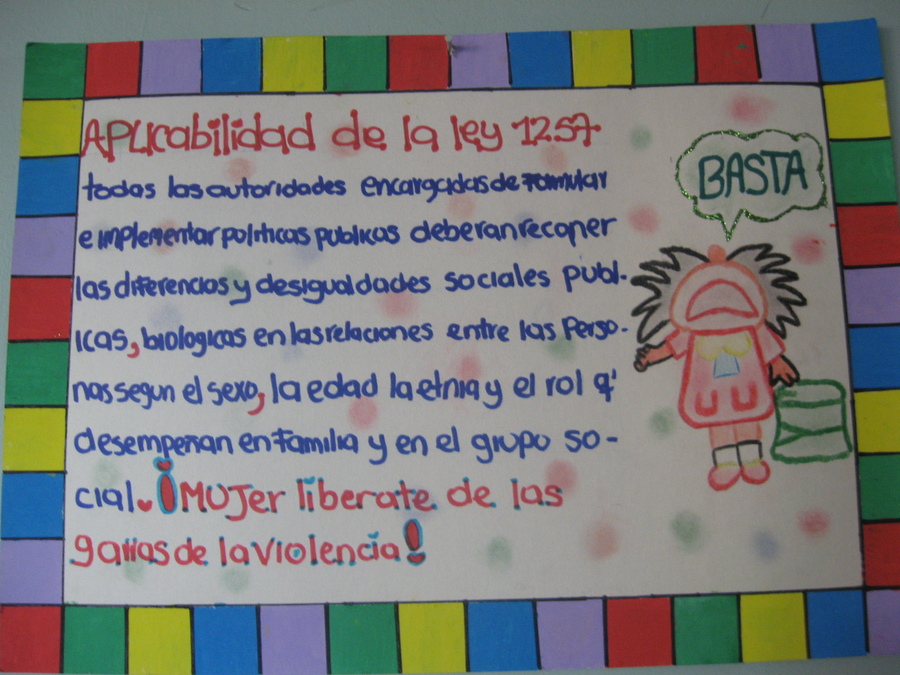 APLICabilidad de la ley 1257
todas las autoridades encargadas de formular
e implementar politicas publicas deberan reconer
las diferencias y desigualdades sociales publ-
icas, biologicas en las relaciones entre las Perso-
nas segun el sexo, la edad la etnia y el rol q'
desempeñan en familia y en el grupo so-
cial. ¡MUJer liberate de las
garras de la violencia!
BASTA